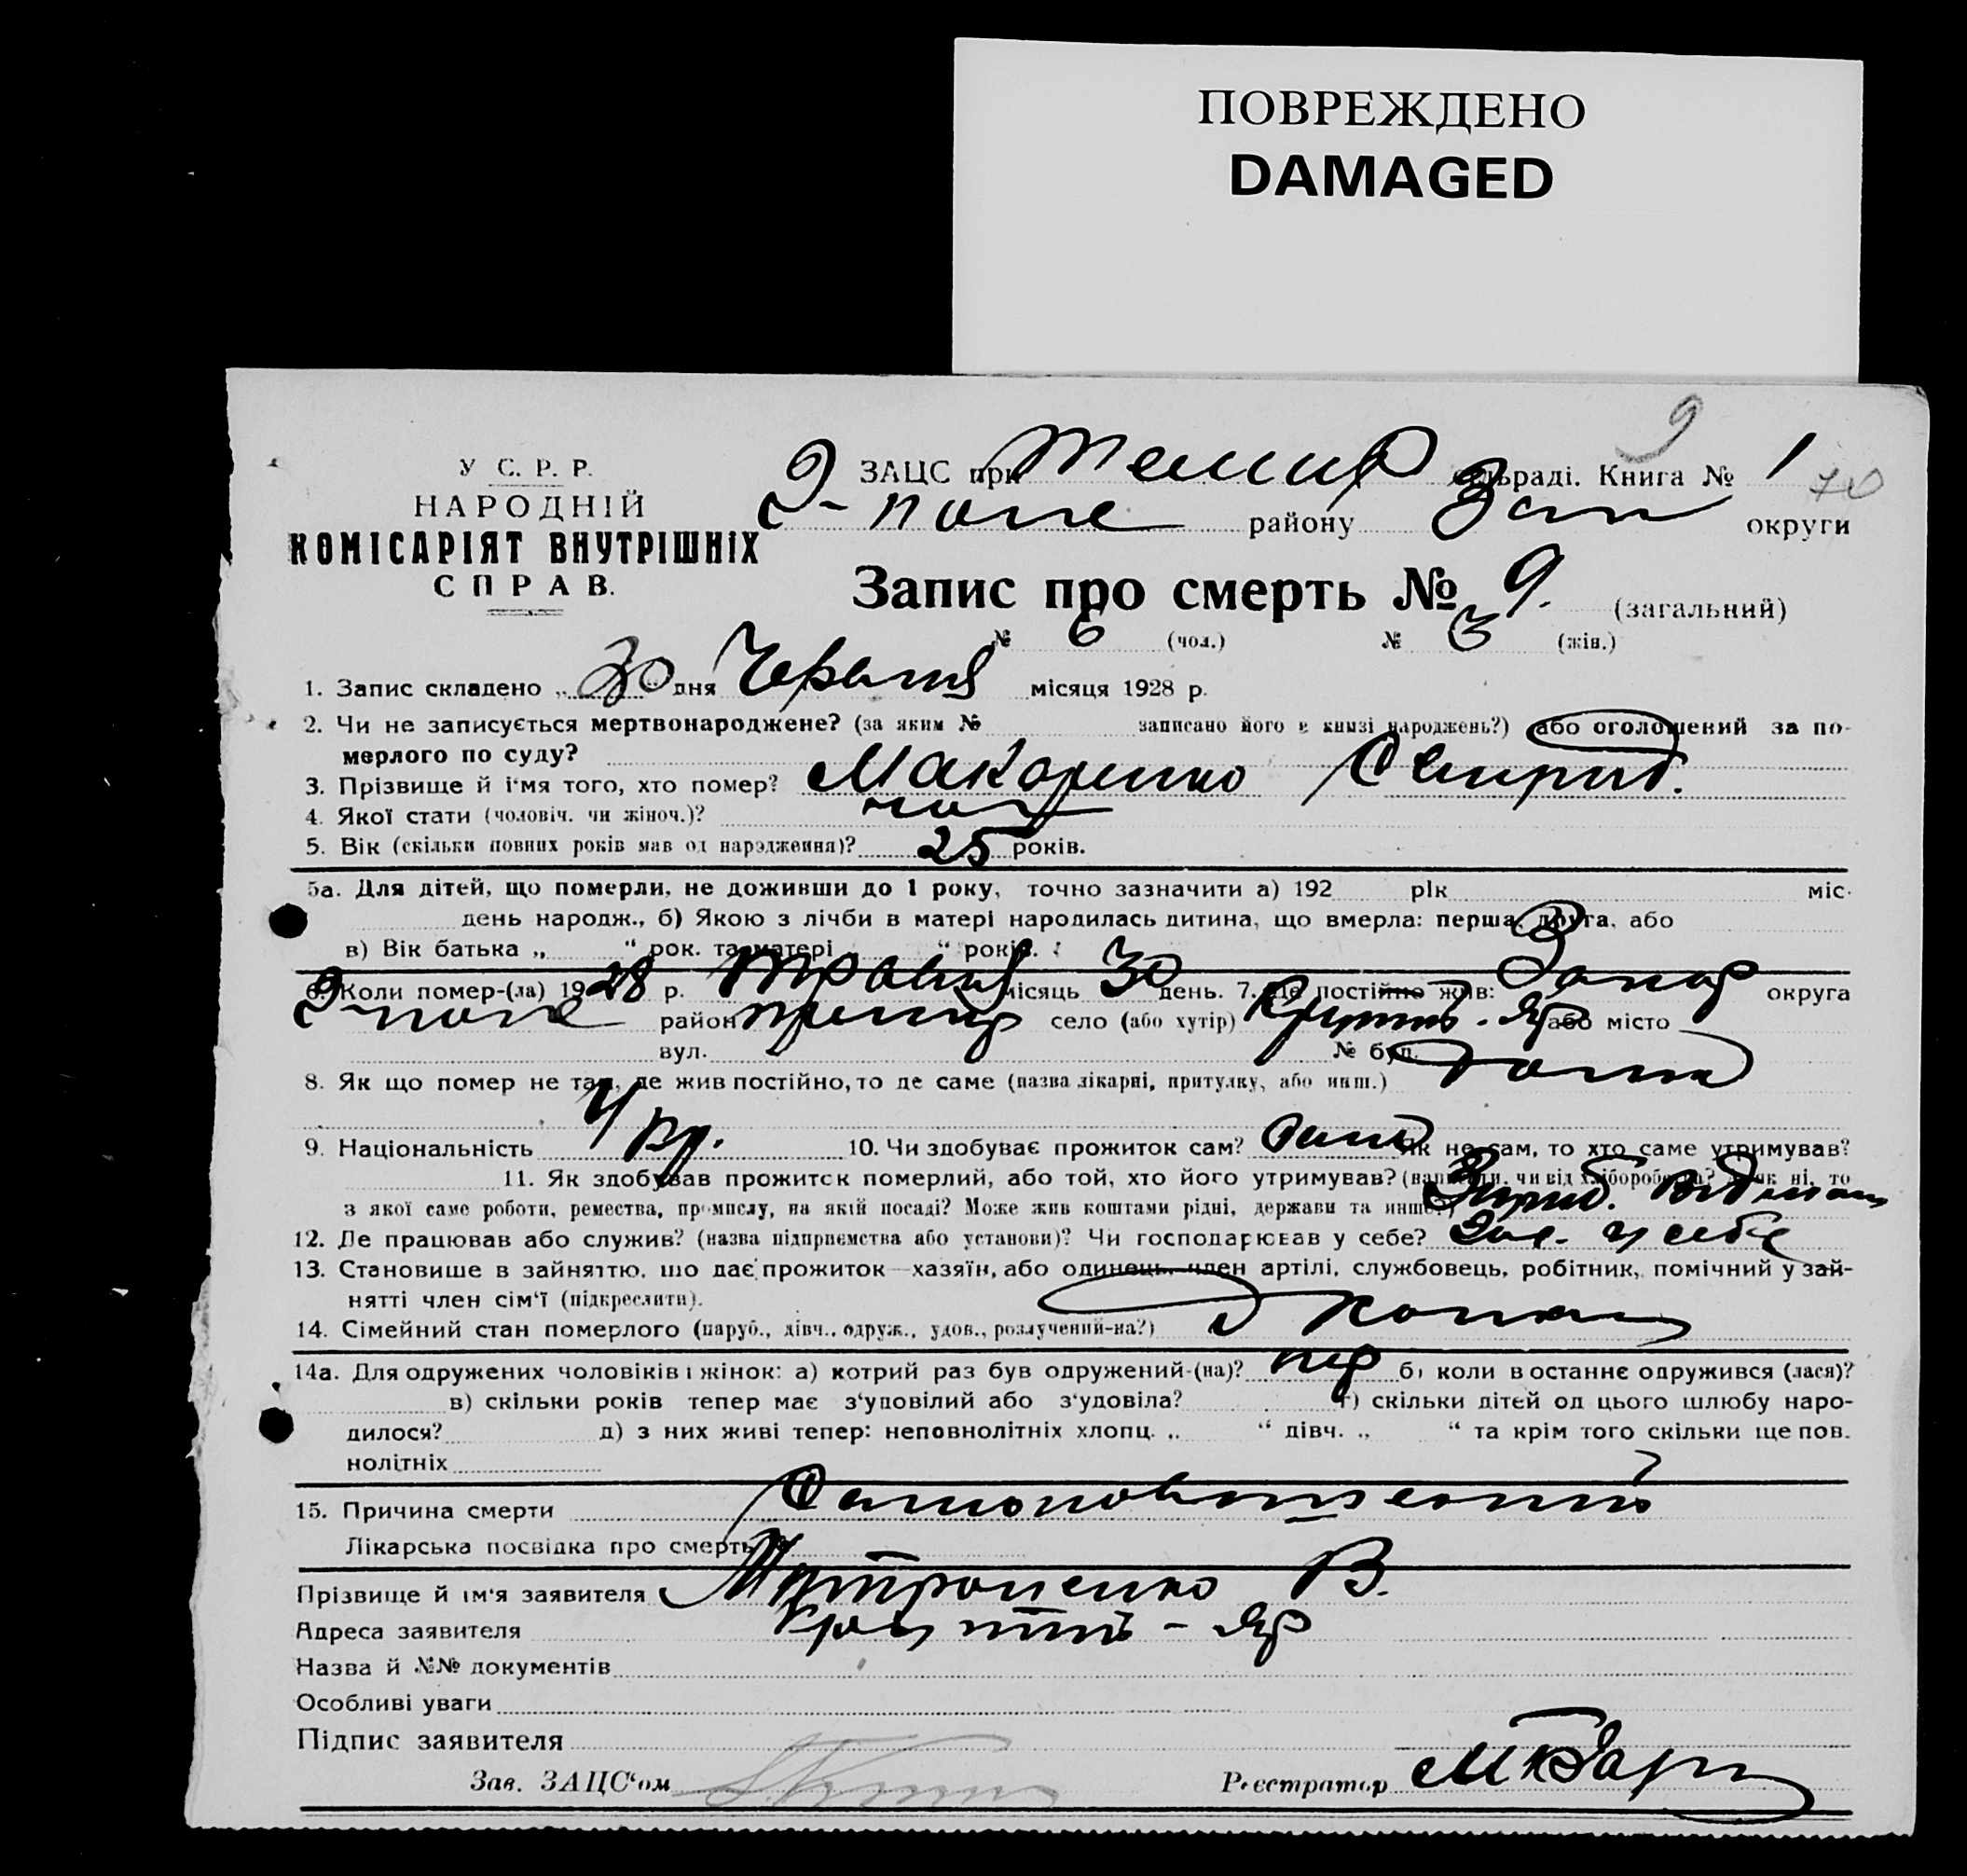 ПОВРЕЖДЕНО
DAMAGED
9
У С. Р. Р.
НАРОДНІЙ
КОМІСАРІЯТ ВНУТРІШНІХ
СПРАВ.
ЗАЦС при сільраді. Книга № 1
70
району Зап округи
Запис про смерть № 9. (загальний)
№ 6 (чол.) № 3 (жін.)
1. Запис складено „ 30 дня Червня місяця 1928 р.
2. Чи не записується мертвонароджене? (за яким № записано його в книзі народжень?) або оголошений за по-
мерлого по суду?
3. Прізвище й і'мя того, хто помер? Макаренко
4. Якої стати (чоловіч. чи жіноч.)? чол
5. Вік (скільки повних років мав од народження)? 25 років.
5а. Для дітей, що померли, не доживши до 1 року, точно зазначити а) 192 рік міс.
день народж., б) Якою з лічби в матері народилась дитина, що вмерла: перша, друга, або
в) Вік батька „ “ рок. та матері “ років.
6. Коли помер-(ла) 1928 р. Травня місяць 30 день. 7. Де постійно жив: Запор округа
район село (або хутір) Яр або місто
вул. № буд.
8. Як що помер не там, де жив постійно, то де саме (назва лікарні, притулку, або инш.) дома
9. Національність Укр. 10. Чи здобуває прожиток сам? сам Як не сам, то хто саме утримував?
11. Як здобував прожиток померлий, або той, хто його утримував? (напишіть, чи від хлібороботва? А як ні, то
з якої саме роботи, ремества, промислу, на якій посаді? Може жив коштами рідні, держави та инше.)
12. Де працював або служив? (назва підприємства або установи)? Чи господарював у себе? у себе
13. Становище в зайняттю, що дає прожиток—хазяїн, або одинець, член артілі, службовець, робітник, помічний у зай-
нятті член сім'ї (підкреслити).
14. Сімейний стан померлого (паруб., дівч., одруж., удов., розлучений-на?)
14а. Для одружених чоловіків і жінок: а) котрий раз був одружений-(на)? пер б) коли в останнє одружився (лася)?
в) скільки років тепер має з'удовілий або з'удовіла? г) скільки дітей од цього шлюбу наро-
дилося? д) з них живі тепер: неповнолітніх хлопц. „ “ дівч. „ “ та крім того скільки ще пов.
нолітніх
15. Причина смерти
Лікарська посвідка про смерть
Прізвище й ім'я заявителя Митропенко В.
Адреса заявителя Яр
Назва й №№ документів
Особливі уваги
Підпис заявителя
Зав. ЗАЦС'ом Реєстратор